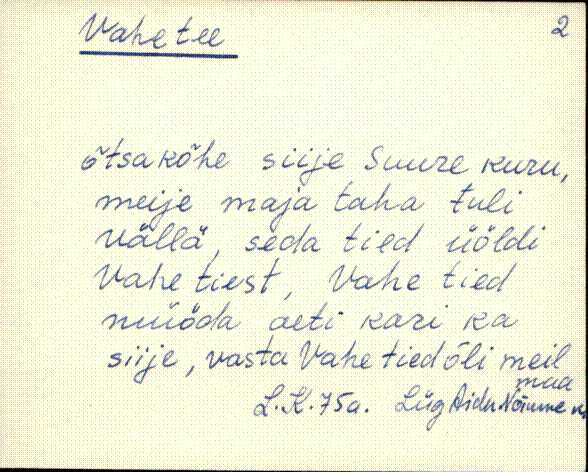 Vahe tee 2
õtsakõhe siije Suure kuru,
meije maja taha tuli
vällä, seda tied üöldi
Vahe tiest, Vahe tied
müöda aeti kari ka
siije, vasta Vahe tied õli meil
maa
L.K. 75a. Lüg Aidu Nõmme k.